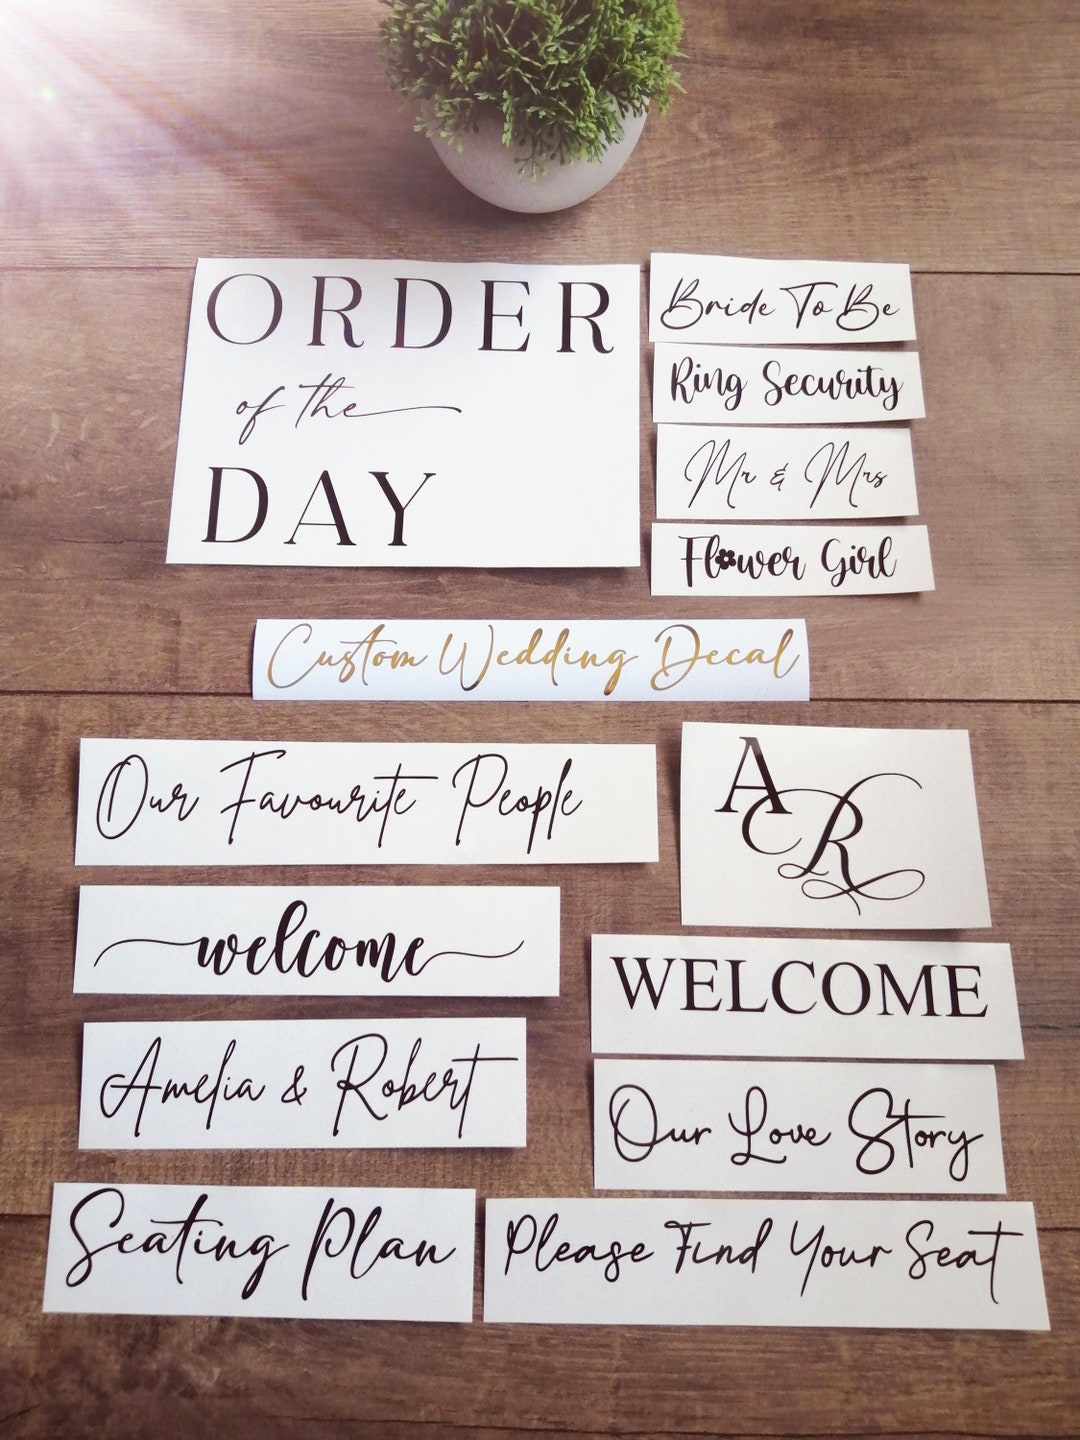 ORDER
of the
DAY
Bride To Be
Ring Security
Mr & Mrs
Flower Girl
Custom Wedding Decal
Our Favourite People
A
R
welcome
WELCOME
Amelia & Robert
Our Love Story
Seating Plan
Please Find Your Seat